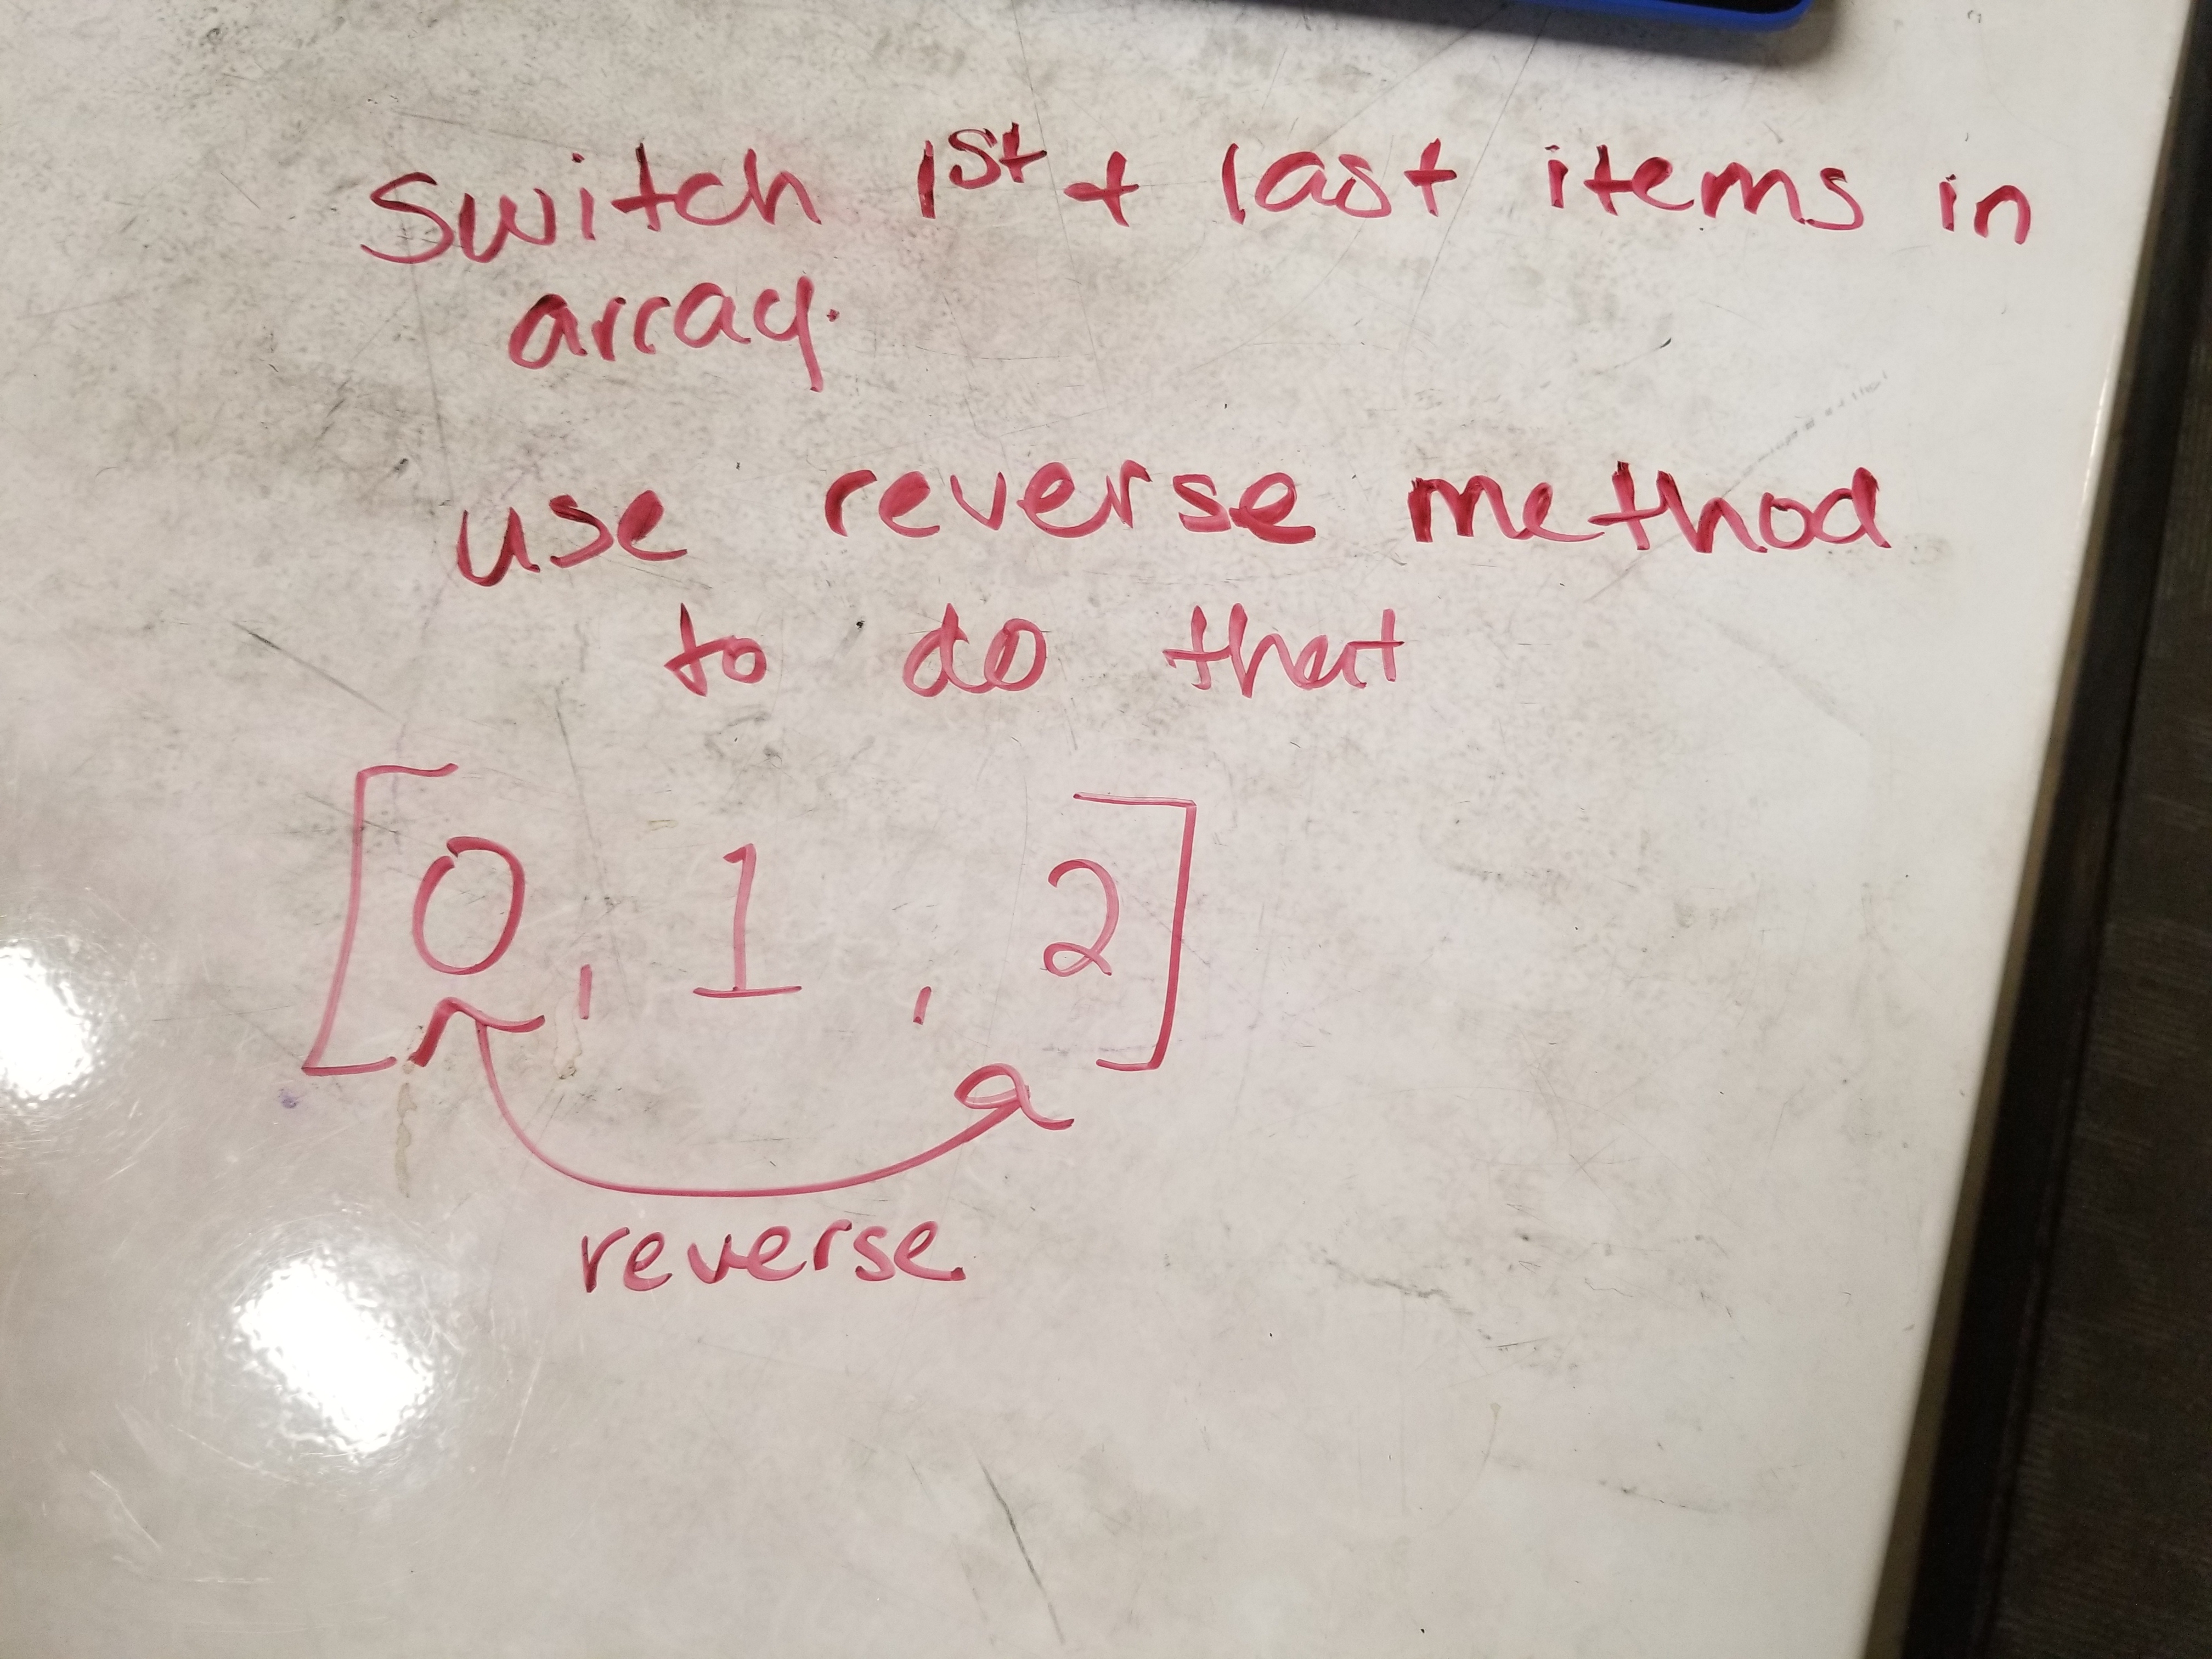 Switch 1st + last items in
array.
use reverse method
to do that
[0, 1, 2]
reverse